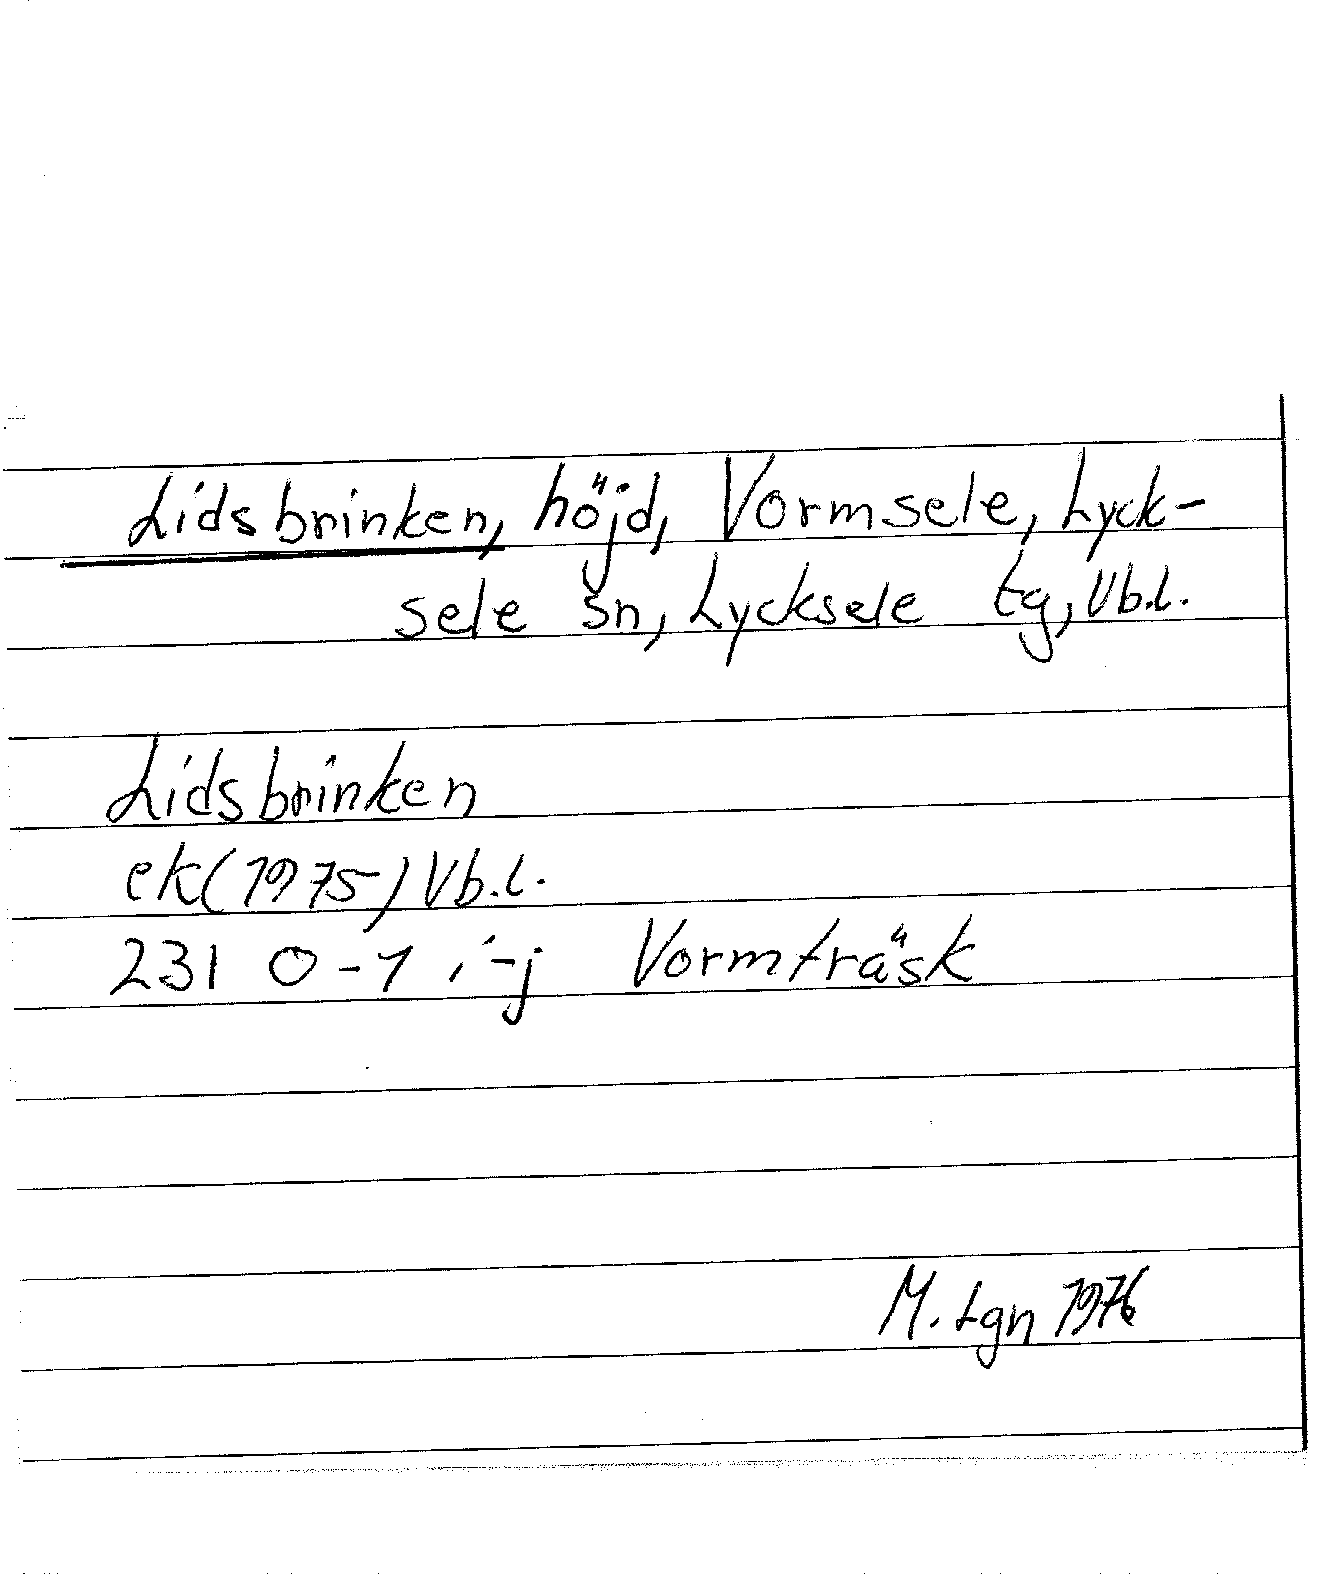 Lidsbrinken, höjd, Vormsele, Lyck-
sele sn, Lycksele tg, Vb.l.
Lidsbrinken
ek(1975) Vb.l.
231 0-1 i-j Vormträsk
M. Lgn 1976